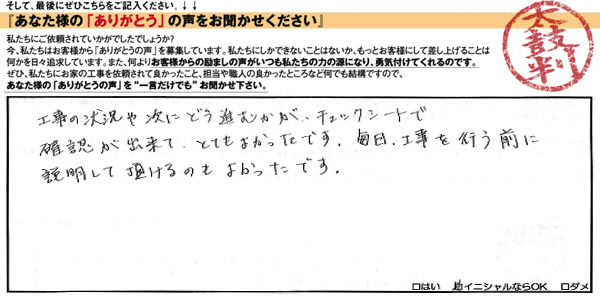 そして、最後にぜひこちらをご記入ください。↓↓
『あなた様の「ありがとう」の声をお聞かせください』
私たちにご依頼されていかがでしたでしょうか?
今、私たちはお客様から「ありがとうの声」を募集しています。私たちにしかできないことはないか、もっとお客様にして差し上げることは
何かを日々追求しています。また、何よりお客様からの励ましの声がいつも私たちの力の源になり、勇気付けてくれるのです。
ぜひ、私たちにお家の工事を依頼されて良かったこと、担当や職人の良かったところなど何でも結構ですので、
あなた様の「ありがとうの声」を“一言だけでも”お聞かせ下さい。
太鼓判
工事の状況や次にどう進むかが、チェックシートで
確認が出来て、とてもよかったです。毎日、工事を行う前に
説明して頂けるのもよかったです。
□はい
イニシャルならOK
□ダメ